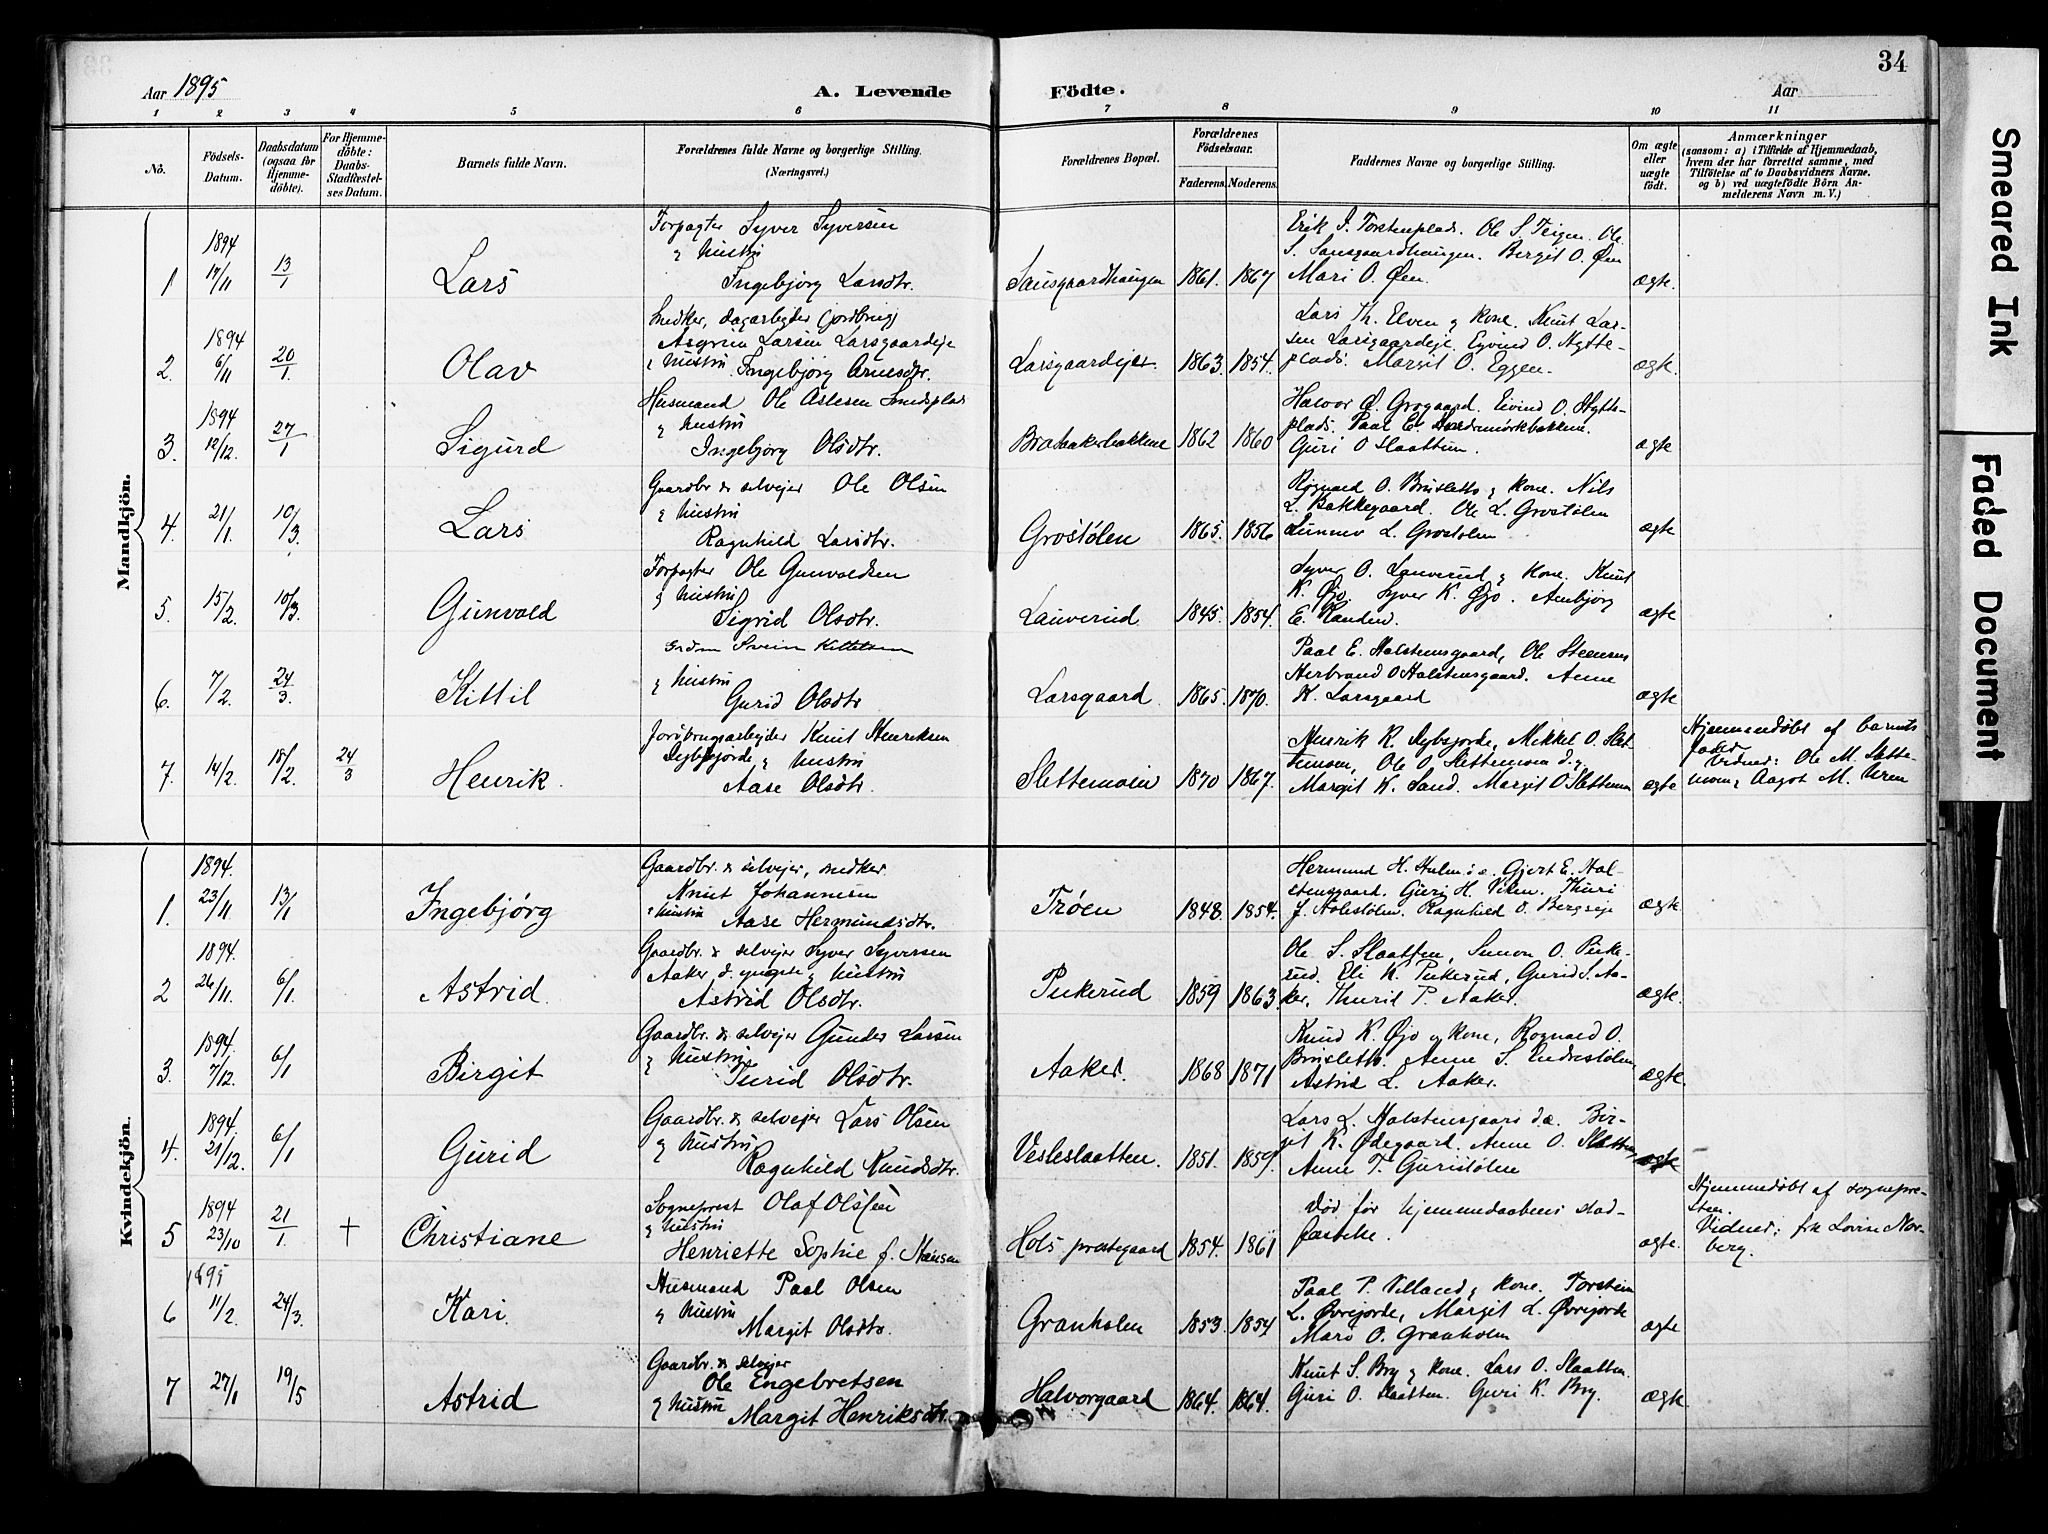 34
Aar 1895
A. Levende Födte.
Aar
1 2 3 4 5 6 7 8 9 10 11
No.
Födsels-Datum.
Daabsdatum (ogsaa for Hjemmedöbte).
For Hjemmedöbte: Daabs-Stadfæstelses Datum.
Barnets fulde Navn.
Forældrenes fulde Navne og borgerlige Stilling.
(Næringsvei.)
Forældrenes Bopæl.
Forældrenes Födselsaar.
Faderens. Moderens.
Faddernes Navne og borgerlige Stilling.
Om ægte eller uægte födt.
Anmærkninger
(saasom: a) i Tilfælde af Hjemmedaab,
hvem der har forrettet samme, med
Tilföielse af to Daabsvidners Navne.
og b) ved uægtefödte Börn An-
melderens Navn m. V.)
Mandkjön.
1894
1 17/11 13/1 Lars
Forpagter Syver Syversen
& hustru
Ingebjørg Larsdtr.
Sausgaardhaugen 1861. 1867
Erik J. Torstenplads. Ole S. Teigen. Ole
S. Sausgaardhaugen. Bergit O. Øen
Mari O. Øen.
ægte.
1894
2. 6/11 20/1. Olav
Snedker, dagarbeyder (jordbrug)
Asgrim Larsen Larsgaardeje
& hustru Ingebjørg Arnesdtr.
Larsgaardejer. 1863. 1854.
Lars Th. Elven & kone. Knut Lar-
sen Larsgaardeje. Eyvind O. Hytte-
plads. Margit O. Eggen.
ægte.
1894
3. 12/12. 27/1 Sigurd
Husmand Ole Aslesen Smedsplads
& hustru
Ingebjørg Olsdtr.
1862 1860
Halvor L. Grogaard. Eivind O. Hytte-
plads. Paal E.
Guri O Slaatten.
ægte
4. 21/1. 10/3. Lars
Gaardbr. & selvejer Ole Olsen
& hustru
Ragnhild Larsdtr.
Grostølen 1865. 1856
Rognald O. Brusletto & kone. Nils
L. Bakkegaard. Ole L. Grostølen
Gunnev L. Grostølen
ægte
5. 15/2. 10/3. Gunvald
Forpagter Ole Gunvaldsen
& hustru
Sigrid Olsdtr.
Lauverud 1845. 1854.
Syver O. Lauverud & kone. Knut
K. Øjo. Syver K. Øjo. Anbjørg
E.
ægte
6. 7/2. 24/3. Kittil
Grdm Svein Kittelsen
& hustru
Gurid Olsdtr
Larsgaard 1865. 1870.
Paal E. Halstensgaard, Ole
Herbrand O Halstensgaard. Anne
K. Larsgaard
ægte
7. 14/2. 18/2. 24/3 Henrik
Jordbrugsarbejder Knut Henriksen
Dybsjorde, & hustru
Aase Olsdtr.
Slettemoin 1870 1867.
Henrik K. Dybsjorde, Mikkel O. Slet-
temoen, Ole O. Slettemoen d.y.
Margit K. Sand. Margit O Slettemoen
ægte
Hjemmedøbt af barnets
fader
Vidner: Ole M. Slette-
moen, Aagot M. Uren
Kvindekjön.
1894.
1. 23/11 13/1 Ingebjørg
Gaardbr. & selvejer, snedker
Knut Johannesen
& hustru Aase Hermundsdtr.
Trøen 1848. 1854.
Hermund H. Gjert E. Hol-
stensgaard. Guri H. Villen. Thuri
J. Ragnhild O. Bergseje
ægte.
1894.
2 26/11. 6/1. Astrid.
Gaardbr. & selvejer Syver Syversen
Aaker d. yngste & hustru
Astrid Olsdtr.
Pukerud 1859 1863.
Ole S. Slaatten, Simon O. Puke-
rud. Eli K. Pukerud, Gurid S. Aa-
ker, Thurid P. Aaker.
ægte.
1894.
3. 7/12. 6/1 Birgit
Gaardbr. & selvejer Gunder Larsen
& hustru
Turid Olsdtr.
Aaker. 1868 1871
Knud K. Øjo & kone, Rognald O.
Brusletto. Anne S. Endrestølen
Astrid L. Aaker.
ægte.
1894.
4. 21/12. 6/1 Gurid
Gaardbr. & selvejer Lars Olsen
& hustru
Ragnhild Knudsdtr.
Vesleslaatten. 1851. 1859.
Lars L. Halstensgaard d.æ. Bir-
git K. Ødegaard. Anne O. Slaatten
Anne T. Guristølen
ægte
1894
5 23/10 21/1. + Christiane
Sogneprest Olaf Olssen
& hustru
Henriette Sophie f. Hansen
Hols prestegaard 1854. 1861
Død før hjemmedaabens stad-
fæstelse.
ægte.
Hjemmedøbt af sognepre-
sten.
Vidner: frk Lovise Nor-
berg.
1895
6 11/2. 24/3. Kari.
Husmand Paal Olsen
& hustru
Margit Olsdtr.
Granholen 1853. 1854
Paal P. Villand & kone, Torstein
L. Øvrejorde, Margit L. Øvrejorde
Mari O. Granholen
ægte
7 27/1 19/5 Astrid
Gaardbr. & selvejer
Ole Engebretsen
& hustru Margit Henriksdtr.
Halvorgaard 1864. 1864.
Knut S. Bry & kone. Lars O. Slaatten.
Guri O. Slaatten. Guri K. Bry.
ægte.
Smeared Ink
Faded Document